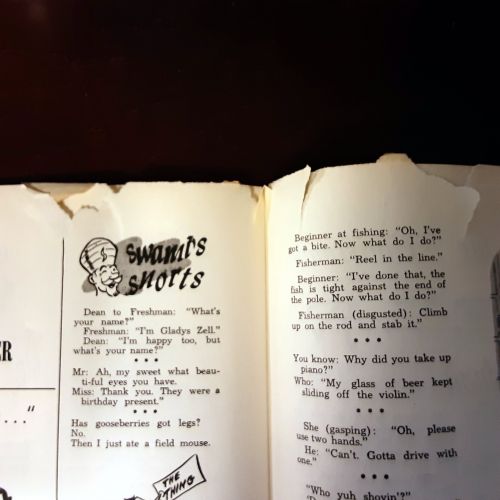 ER
"
...
swami's
snorts
Dean to Freshman: "What's
your name?"
Freshman: "I'm Gladys Zell."
Dean: "I'm happy too, but
what's your name?"
* * *
Mr: Ah, my sweet what beau-
ti-ful eyes you have.
Miss: Thank you. They were a
birthday present."
* * *
Has gooseberries got legs?
No.
Then I just ate a field mouse.
THE
THING
Beginner at fishing: "Oh, I've
got a bite. Now what do I do?"
Fisherman: "Reel in the line."
Beginner: "I've done that, the
fish is tight against the end of
the pole. Now what do I do?"
Fisherman (disgusted): Climb
up on the rod and stab it."
* * *
You know: Why did you take up
piano?"
Who: "My glass of beer kept
sliding off the violin."
* * *
She (gasping): "Oh, please
use two hands."
He: "Can't. Gotta drive with
one."
* * *
"Who yuh shovin'?"